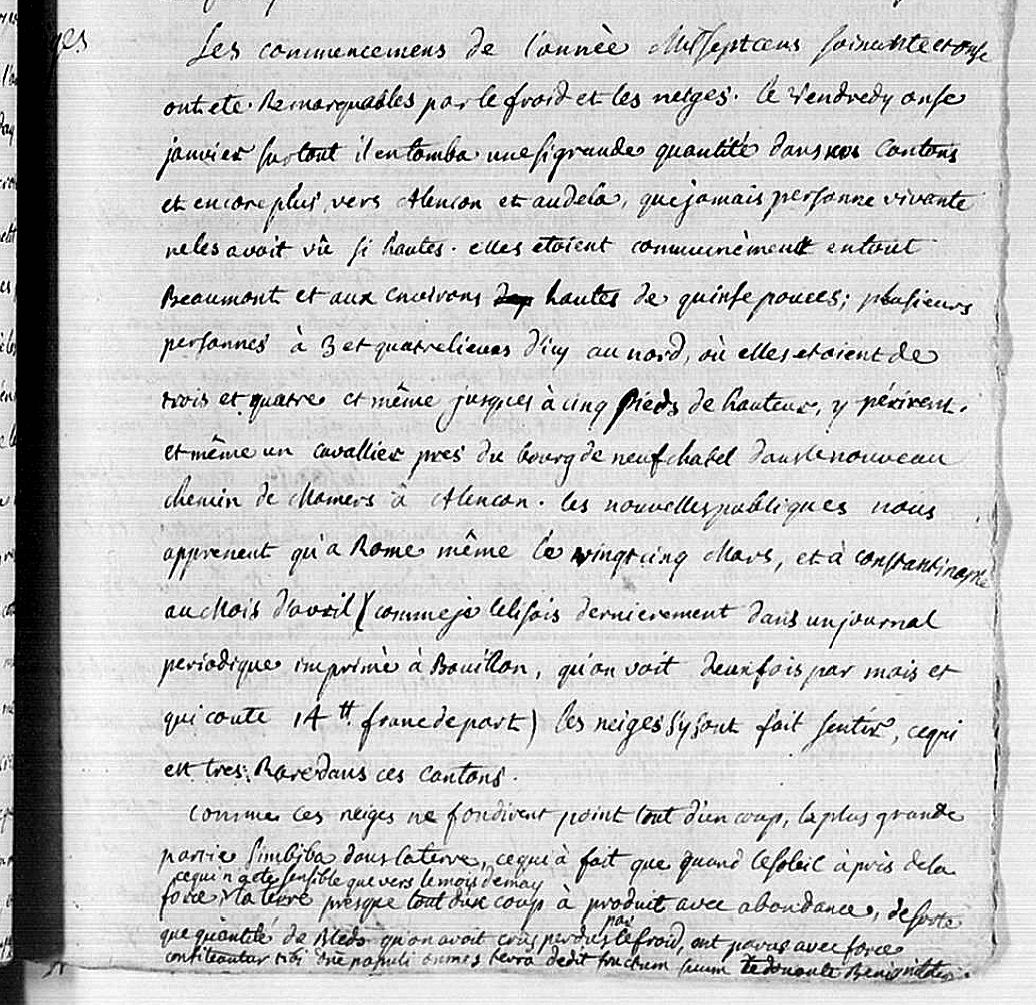 Les commencemens de l'année Mil sept cens soixante et onze
ont ete Remarquables par le froid et les neiges. le vendredy onse
janvier surtout il en tomba une si grande quantité dans nos Cantons
et encore plus vers Alencon et au dela, que jamais personne vivante
ne les avoit vû si hautes. elles etoient communèment en tout
Beaumont et aux environs hautes de quinse pouces; plusieurs
personnes à 3 et quatre lieues d'icy au nord, où elles etoient de
trois et quatre et même jusques à cinq pieds de hauteur, y périrent.
et même un cavallier pres du bourg de neufchatel dans le nouveau
chemin de Mamers à Alencon. les nouvelles publiques nous
apprenent qu'a Rome même le vingt cinq Mars, et à constantinople
au Mois d'avril (comme je le lisois dernierement dans un journal
periodique imprimè à Bouillon, qu'on voit deux fois par mois et
qui coute 14 tt franc de port) les neiges s'y sont fait sentir, ce qui
est tres Rare dans ces Cantons.
comme ces neiges ne fondirent point tout d'un coup, la plus grande
partie s'imbiba dans la terre, ce qui à fait que quand le soleil à pris de la
ce qui n'a ete sensible que vers le mois de may
force, la terre presque tout d'un coup à produit avec abondance, de sorte
que quantité de Bleds qu'on avoit crus perdus par le froid, ont parus avec force
confiteantur tibi Dne populi omnes terra dedit fructum suum te donante Benignitatem.